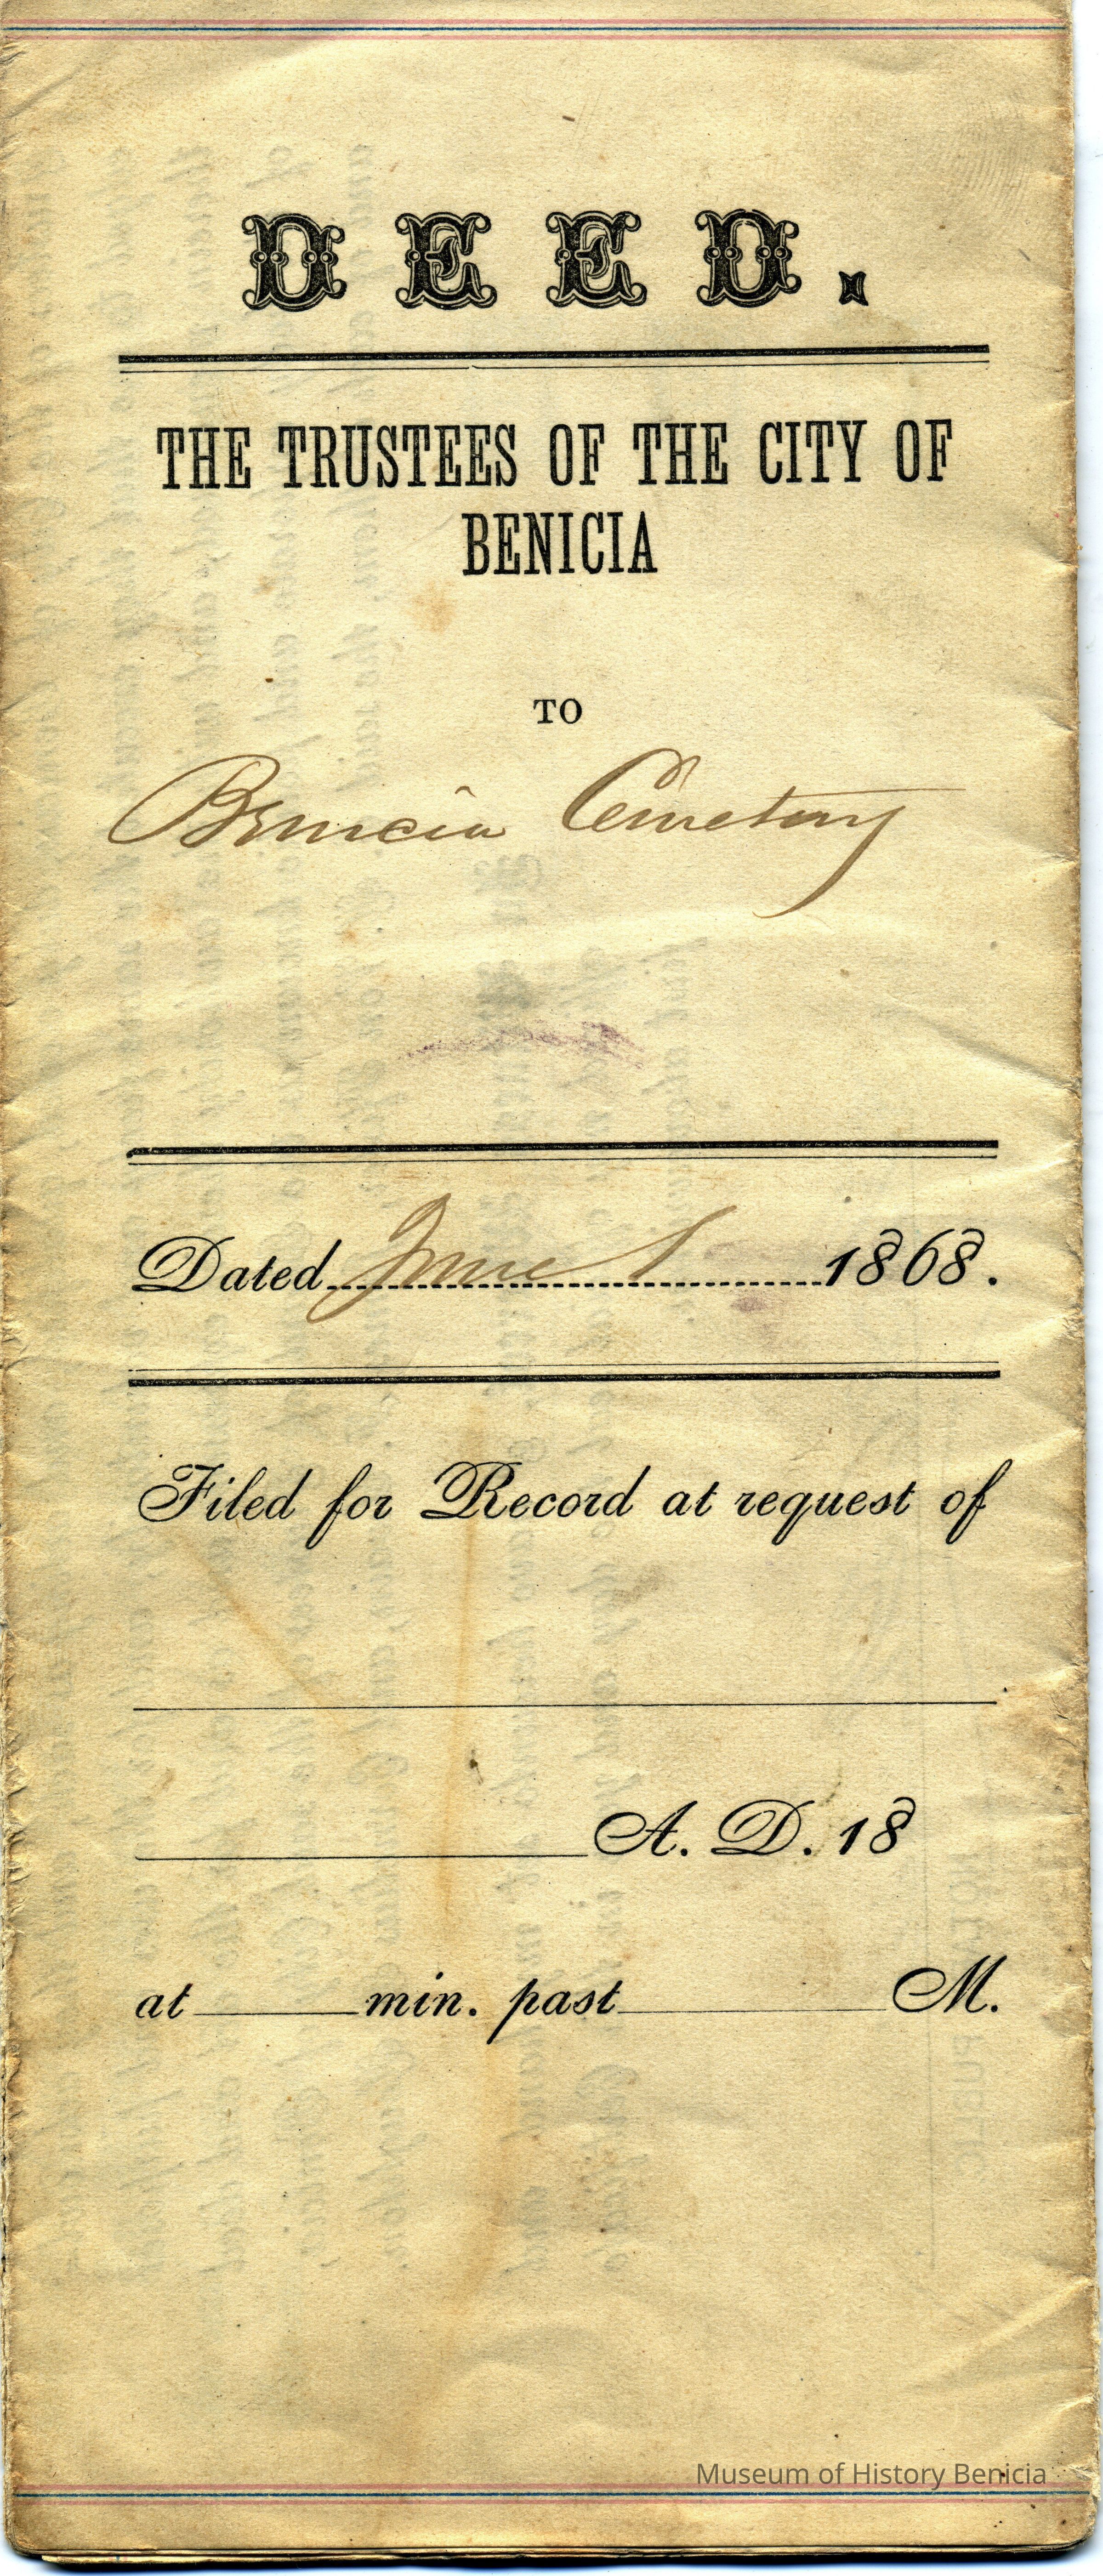 DEED.
THE TRUSTEES OF THE CITY OF
BENICIA
TO
Benicia Cemetery
Dated June 1 1868.
Filed for Record at request of
A. D. 18
at min. past M.
Museum of History Benicia